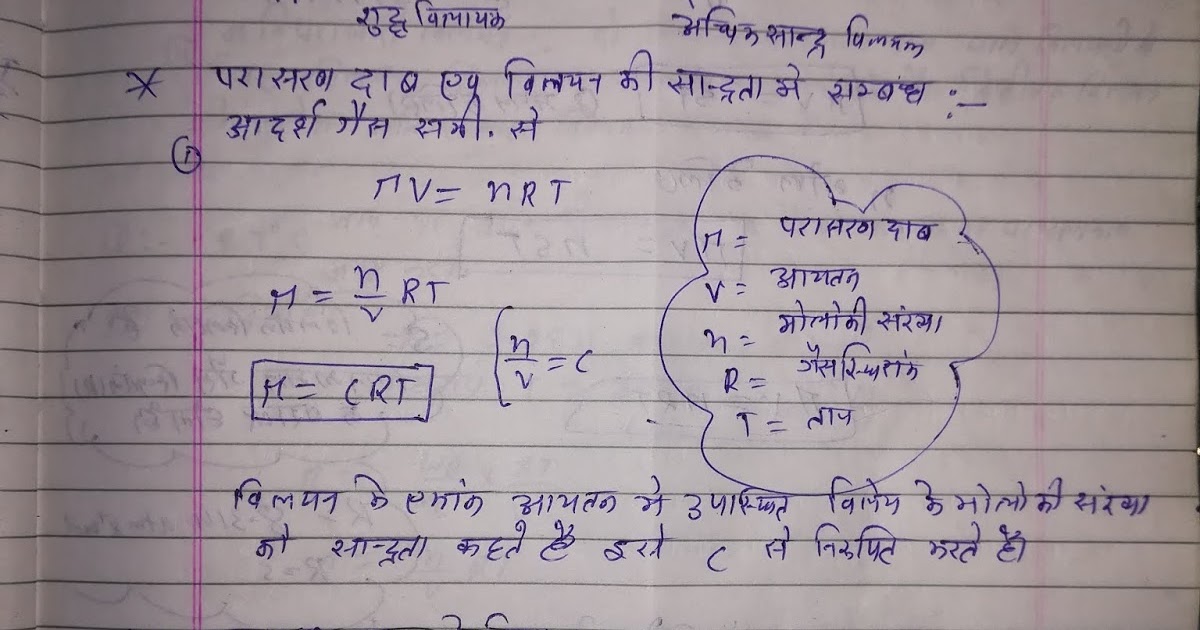 शुद्ध विलायक
अधिक सान्द्र विलयन
* परासरण दाब एवं विलयन की सान्द्रता मे सम्बंध :-
① आदर्श गैस समी. से
π V = nRT
π = n/V RT
[n/V = C
π = CRT
π = परासरण दाब
V = आयतन
n = मोलो की संख्या
R = गैस स्थिरांक
T = ताप
विलयन के एकांक आयतन मे उपास्थित विलेय के मोलो की संख्या
को सान्द्रता कहते है इसे C से निरूपित करते है।